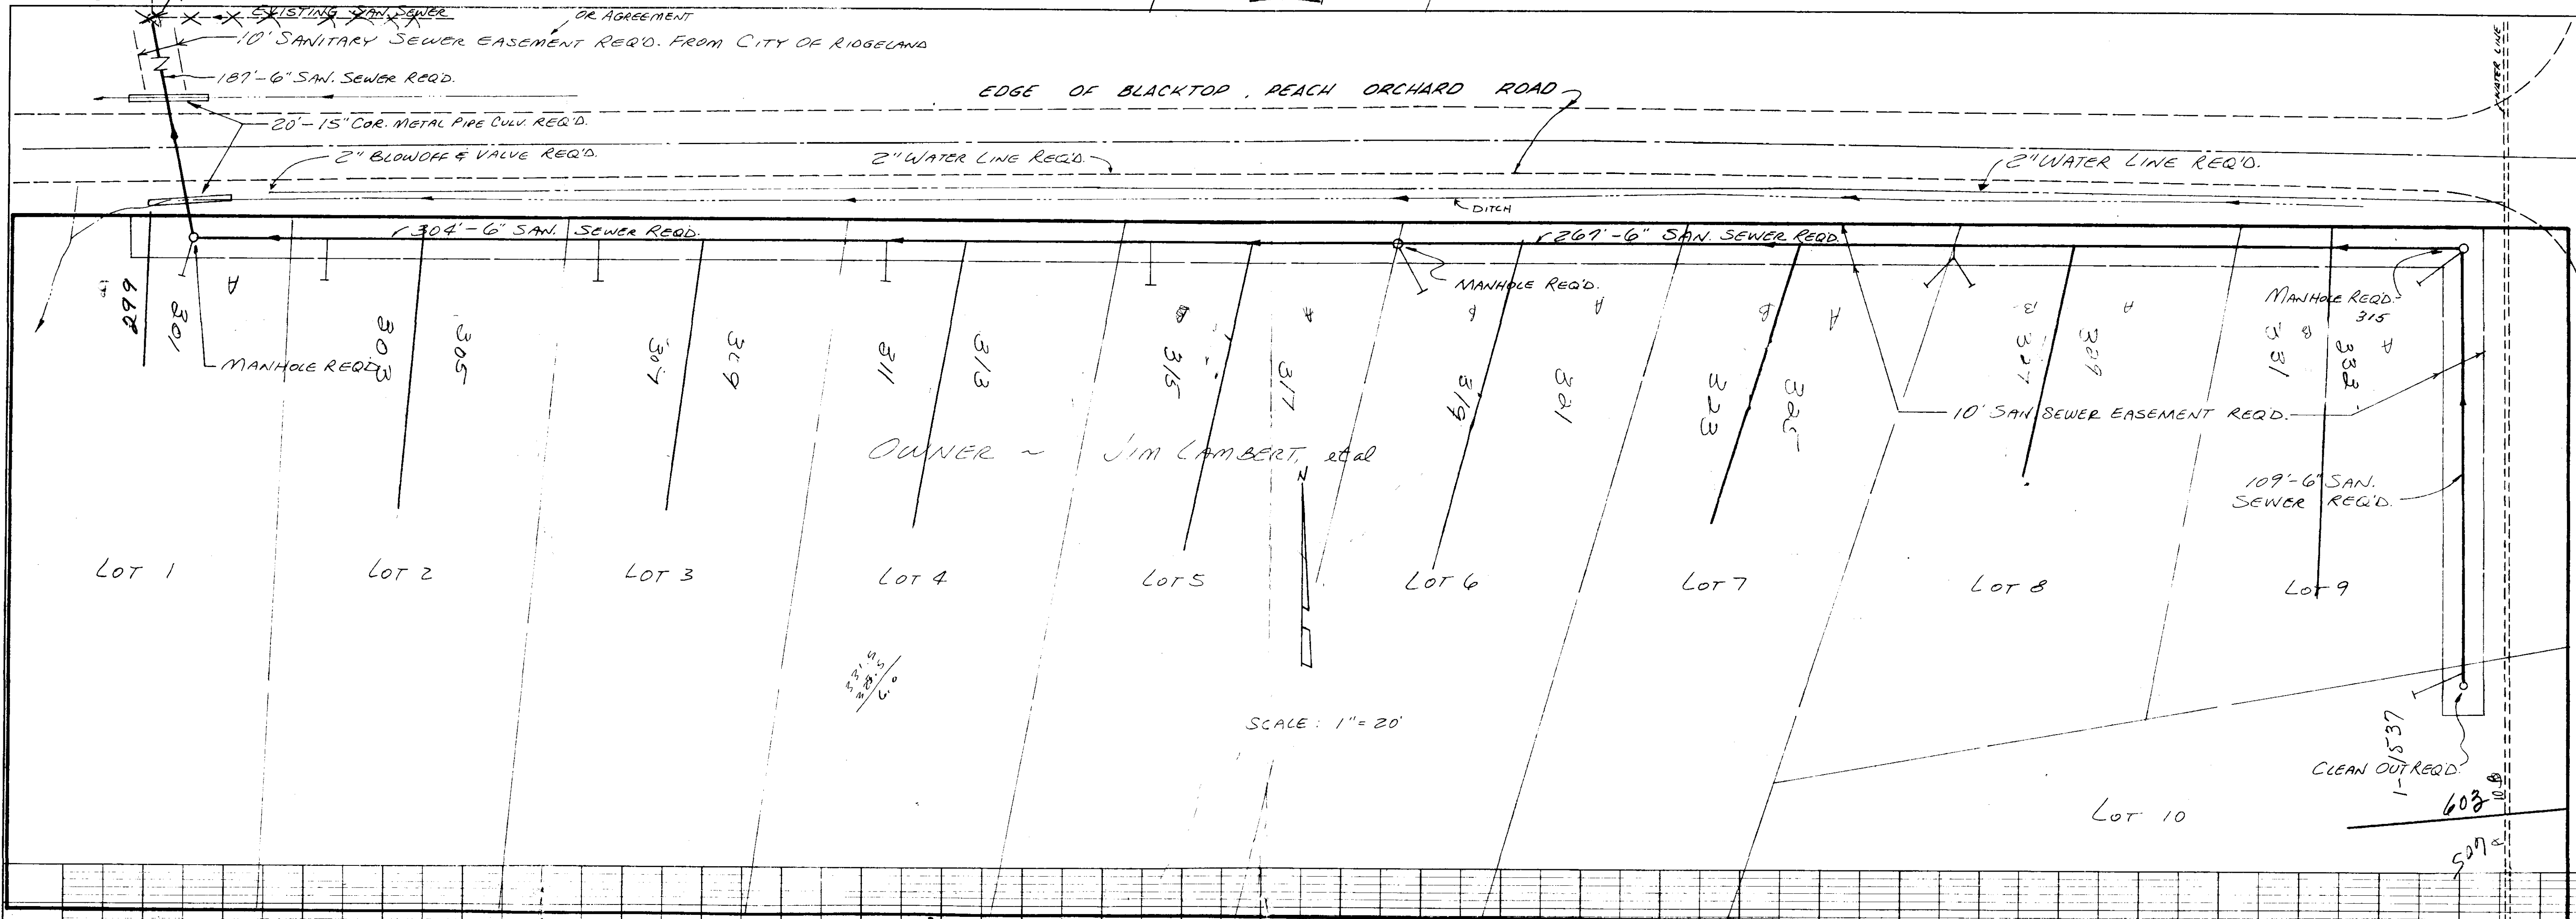 EXISTING SAN. SEWER
OR AGREEMENT
10' SANITARY SEWER EASEMENT REQ'D. FROM CITY OF RIDGELAND
187'-6" SAN. SEWER REQ'D.
EDGE OF BLACKTOP, PEACH ORCHARD ROAD
WATER LINE
20'-15" COR. METAL PIPE CULV. REQ'D.
2" BLOWOFF & VALVE REQ'D.
2" WATER LINE REQ'D.
2" WATER LINE REQ'D.
DITCH
304'-6" SAN. SEWER REQD.
267'-6" SAN. SEWER REQD.
MANHOLE REQ'D.
MANHOLE REQD.
315
MANHOLE REQD.
299
301
A
303
305
307
309
311
313
B
315
A
317
319
A
321
B
323
A
325
B
327
A
329
331
B
333
A
10' SAN SEWER EASEMENT REQ'D.
OWNER ~ JIM LAMBERT, et al
N
109'-6" SAN.
SEWER REQ'D.
LOT 1
LOT 2
LOT 3
LOT 4
LOT 5
LOT 6
LOT 7
LOT 8
LOT 9
SCALE: 1" = 20'
1-1537
CLEAN OUT REQD.
603
10 B
LOT 10